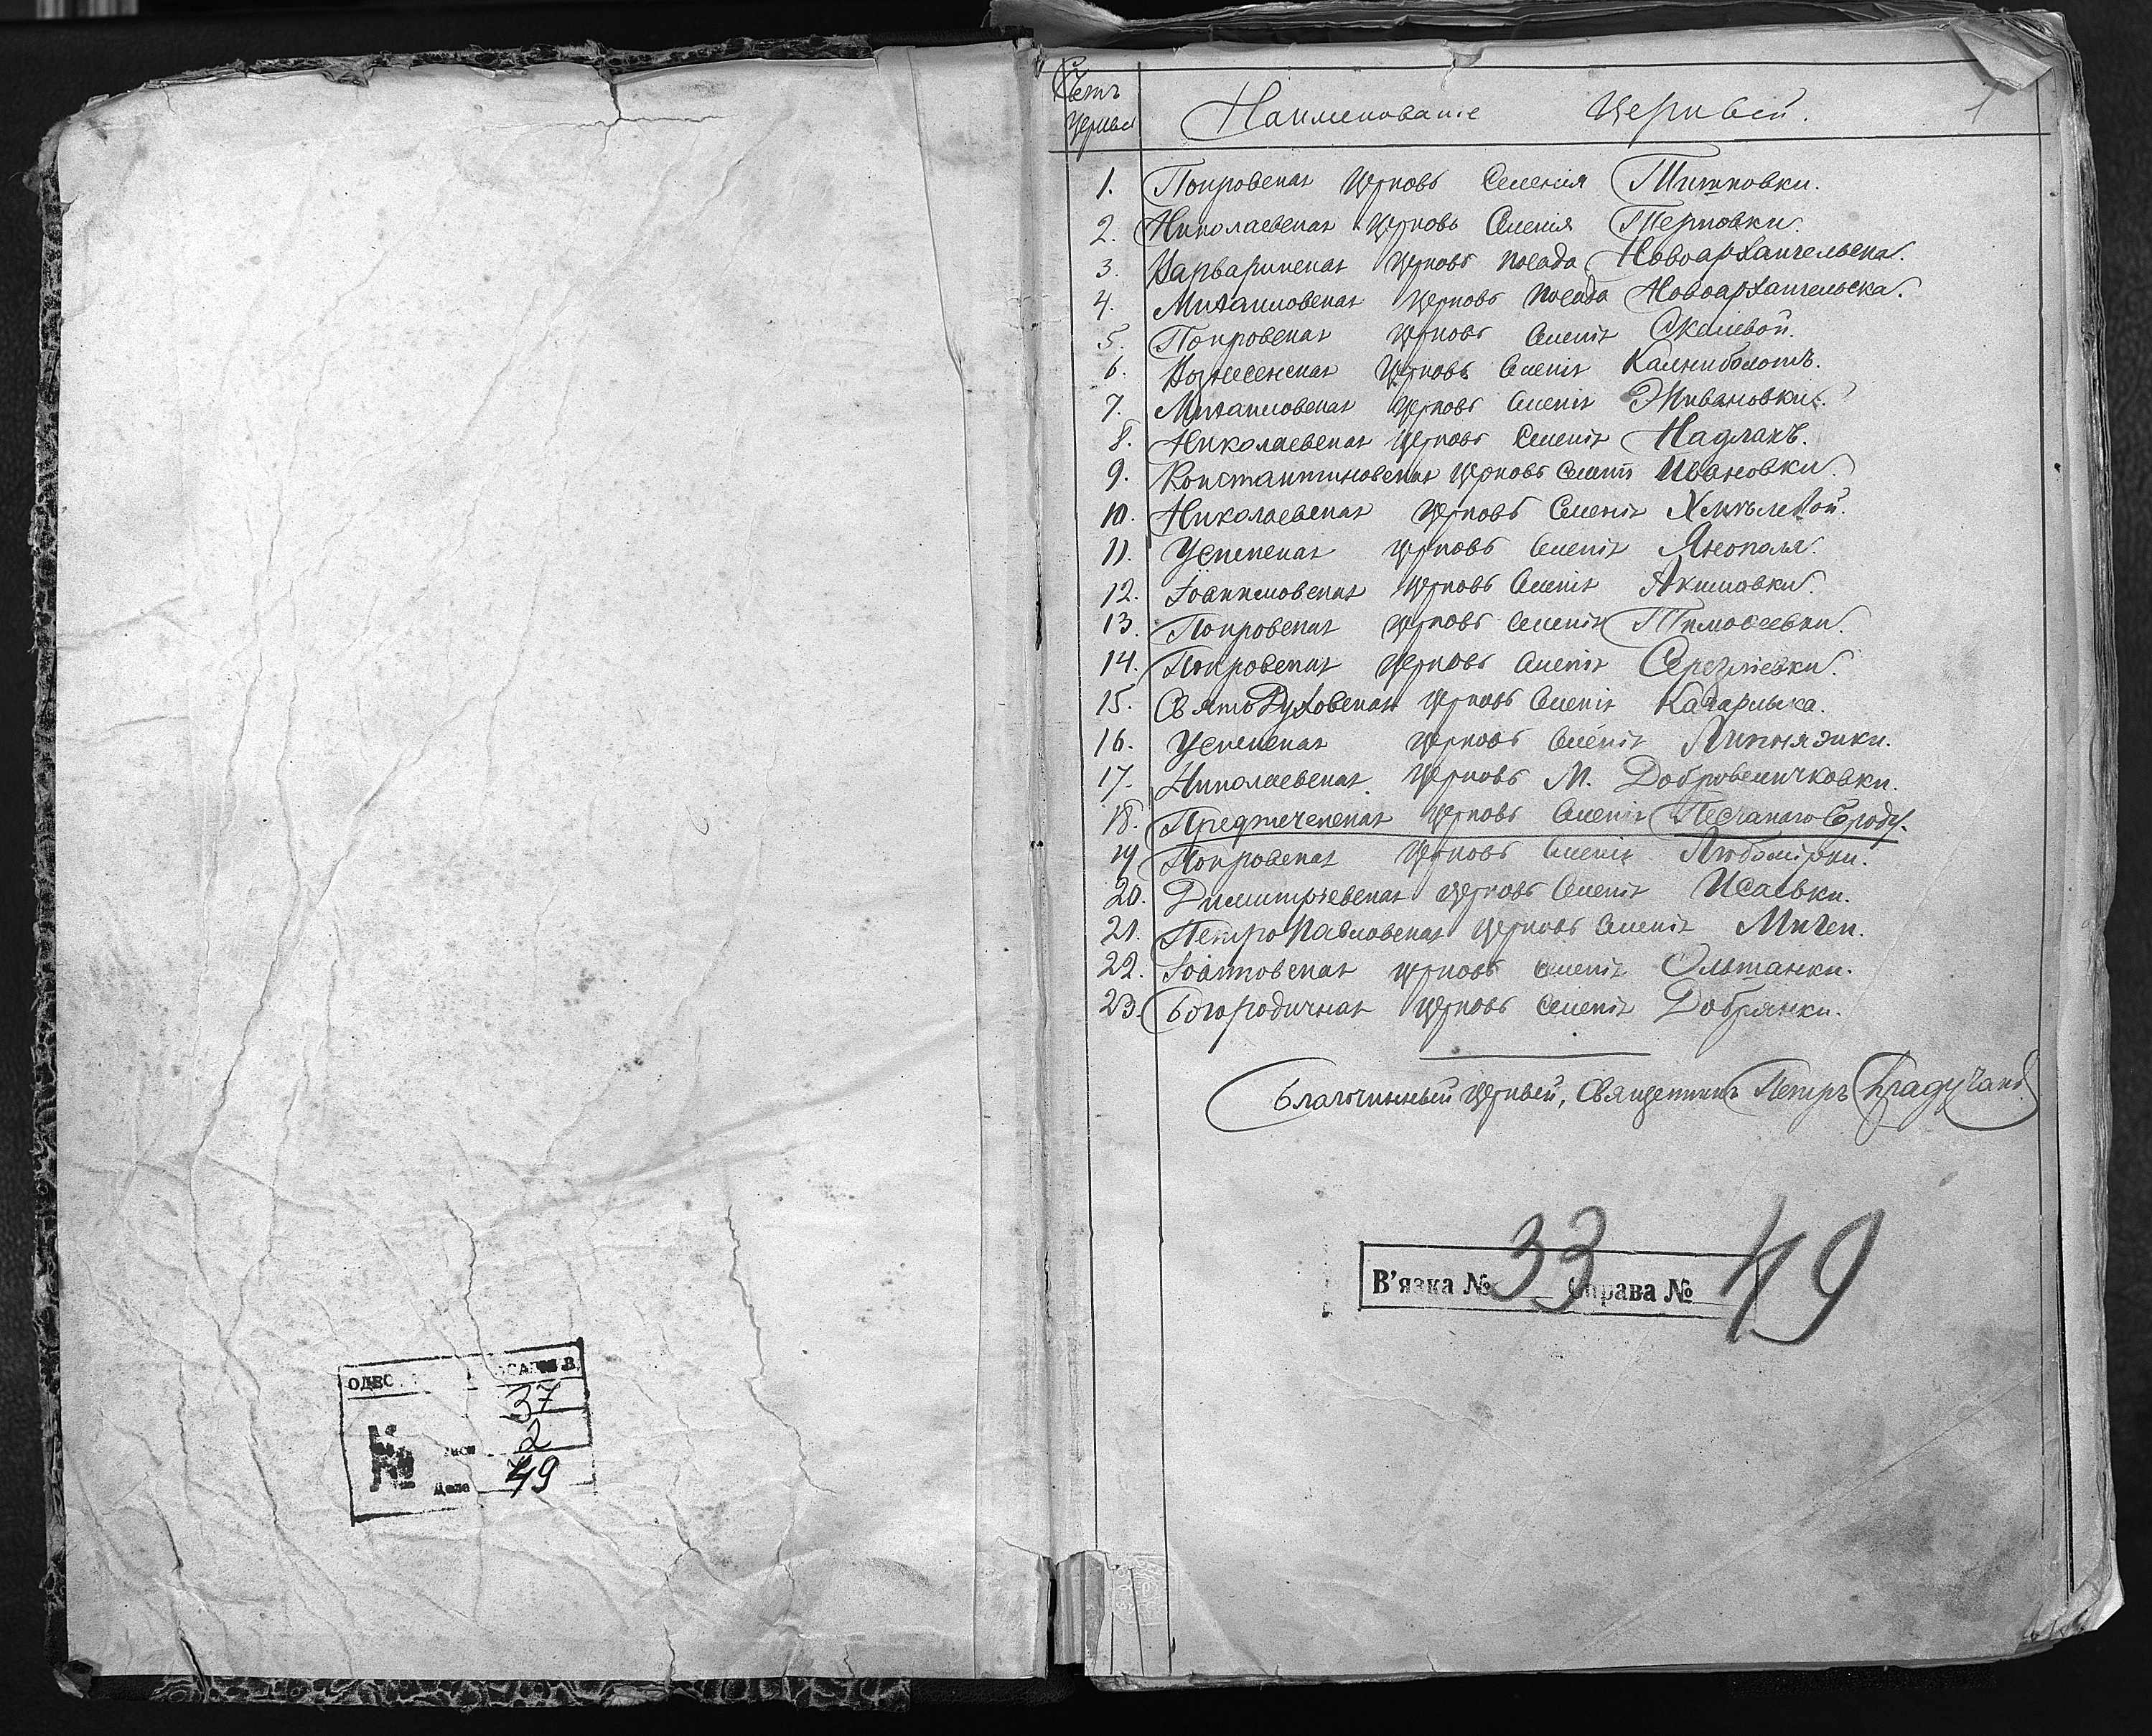 Счетъ церквей
Наименованіе Церквей.
1
1. Покровская Церковь Селенія Тишковки.
2. Николаевская Церковь Селенія Терновки.
3. Варваринская Церковь посада Новоархангельска.
4. Михайловская Церковь посада Новоархангельска.
5. Покровская Церковь Селенія Скалевой.
6. Вознесенская Церковь Селенія Кальниболотъ.
7. Михайловская Церковь Селенія Живановки.
8. Николаевская Церковь Селенія Надлакъ.
9. Константиновская Церковь Селенія Ивановки.
10. Николаевская Церковь Селенія Хмѣлевой.
11. Успенская Церковь Селенія Янополя.
12. Іоанновская Церковь Селенія Акимовки.
13. Покровская Церковь Селенія Тимоѳеевки.
14. Покровская Церковь Селенія Серезлѣевки.
15. СвятоДуховская Церковь Селенія Кагарлыка.
16. Успенская Церковь Селенія Липняжки.
17. Николаевская Церковь М. Добровеличковки.
18. Предтеченская Церковь Селенія Песчанаго Броду.
19 Покровская Церковь Селенія Любомірки.
20. Димитріевская Церковь Селенія Исаевки.
21. ПетроПавловская Церковь Селенія Мигеи.
22. Іоанновская Церковь Селенія Ольшанки.
23. Богородичная Церковь Селенія Добрянки.
Благочинный Церквей, Священникъ Петръ
В'язка № 33 Справа № 49
37
2
Дело 49